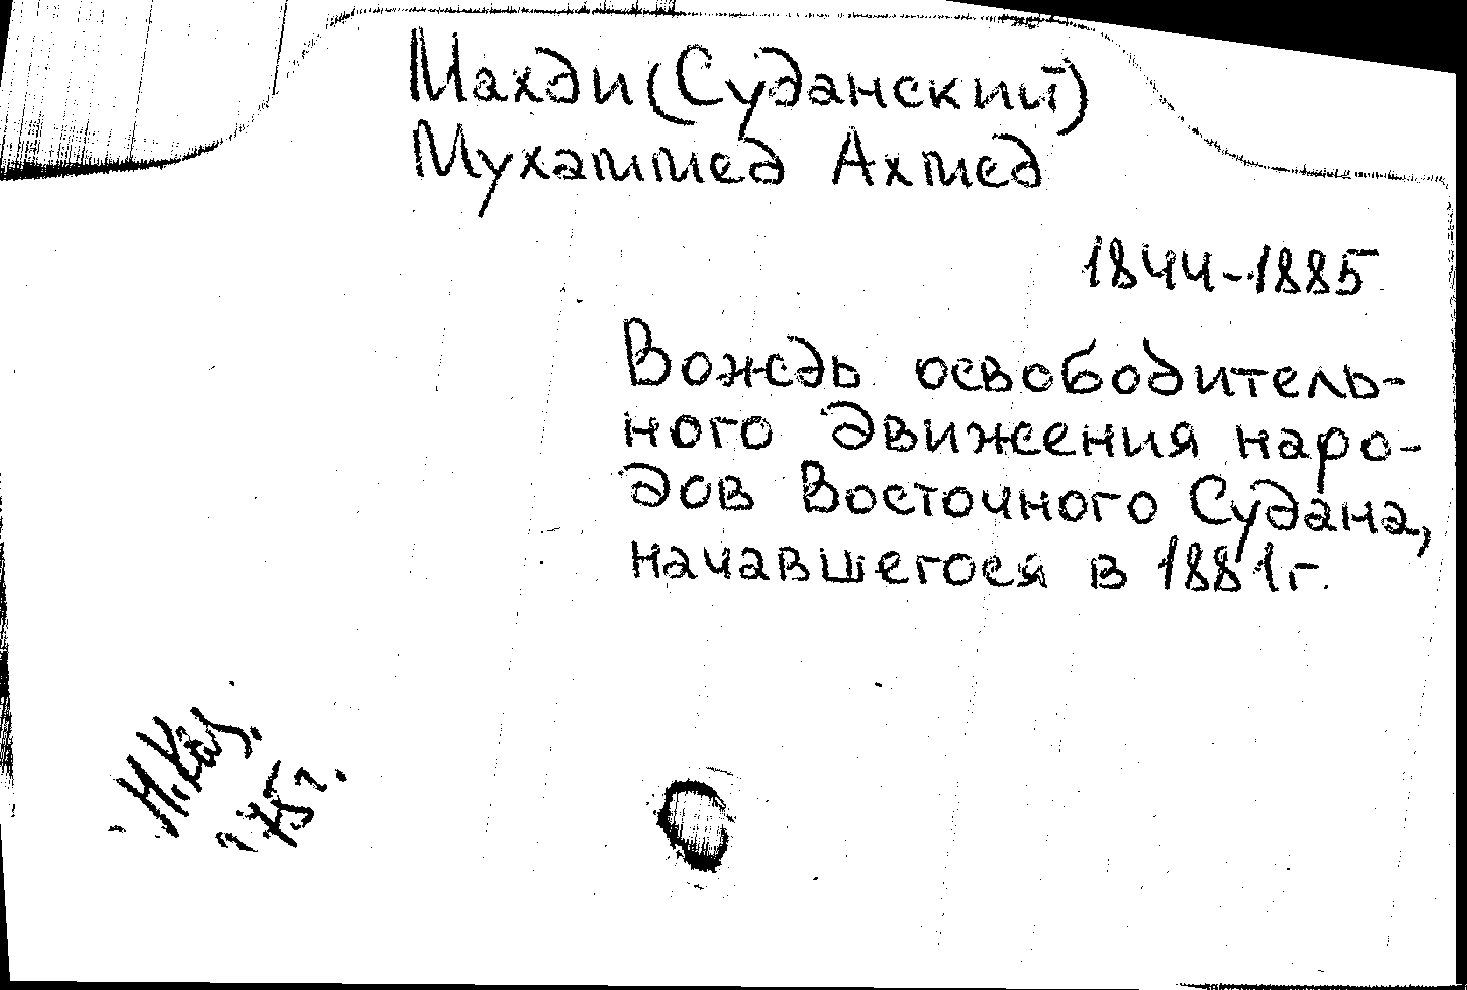 Махди (Суданский)
Мухаммед Ахмед
1844-1885
Вождь освободитель-
ного движения наро-
дов Восточного Судана,
начавшегося в 1881 г.
М. Каз.
75 г.